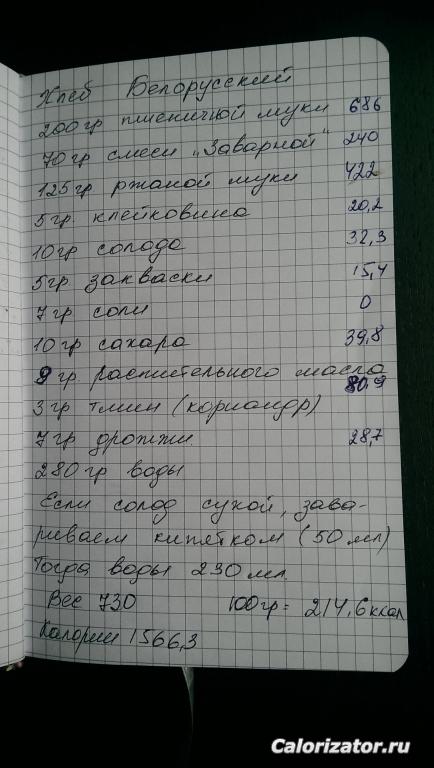 Хлеб Белорусский
200гр пшеничной муки 686
70гр смеси „Заварной" 240
125гр ржаной муки 422
5гр. клейковина 20,2
10гр солода 32,3
5гр. закваски 15,4
7гр соли 0
10гр сахара 39,8
9гр. растительного масла 80,9
3гр тмин (кориандр)
7гр дрожжи. 28,7
280гр воды
Если солод сухой, зава-
риваем кипятком (50мл)
Тогда воды 230мл.
Вес 730 100гр= 214,6ккал
Калории 1566,3
Calorizator.ru